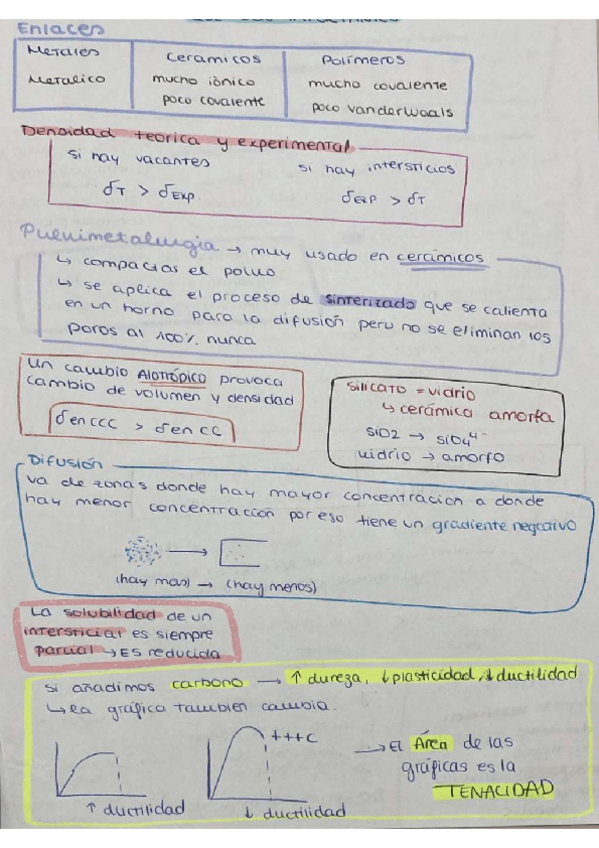 Enlaces
Metales
Ceramicos
Polímeros
Metalico
mucho iónico
poco covalente
mucho covalente
poco vanderwaals
Densidad teorica y experimental
si hay vacantes
si hay intersticios
δT > δExp.
δExp > δT
Pulvimetalurgia → muy usado en cerámicos
↳ compactas el polvo
↳ se aplica el proceso de sinterizado que se calienta
en un horno para la difusión pero no se eliminan los
poros al 100% nunca
Un cambio Alotrópico provoca
cambio de volumen y densidad
δ en CCC > δ en CC
silicato = vidrio
↳ cerámica amorfa
SiO2 → SiO4 4-
vidrio → amorfo
Difusión
va de zonas donde hay mayor concentracion a donde
hay menor concentración por eso tiene un gradiente negativo
(hay mas) → (hay menos)
La solubilidad de un
intersticial es siempre
parcial → Es reducida
si añadimos carbono → ↑ dureza, ↓ plasticidad, ↓ ductilidad
↳ la gráfica tambien cambia.
+++C
↑ ductilidad
↓ ductilidad
→ El Área de las
gráficas es la
TENACIDAD